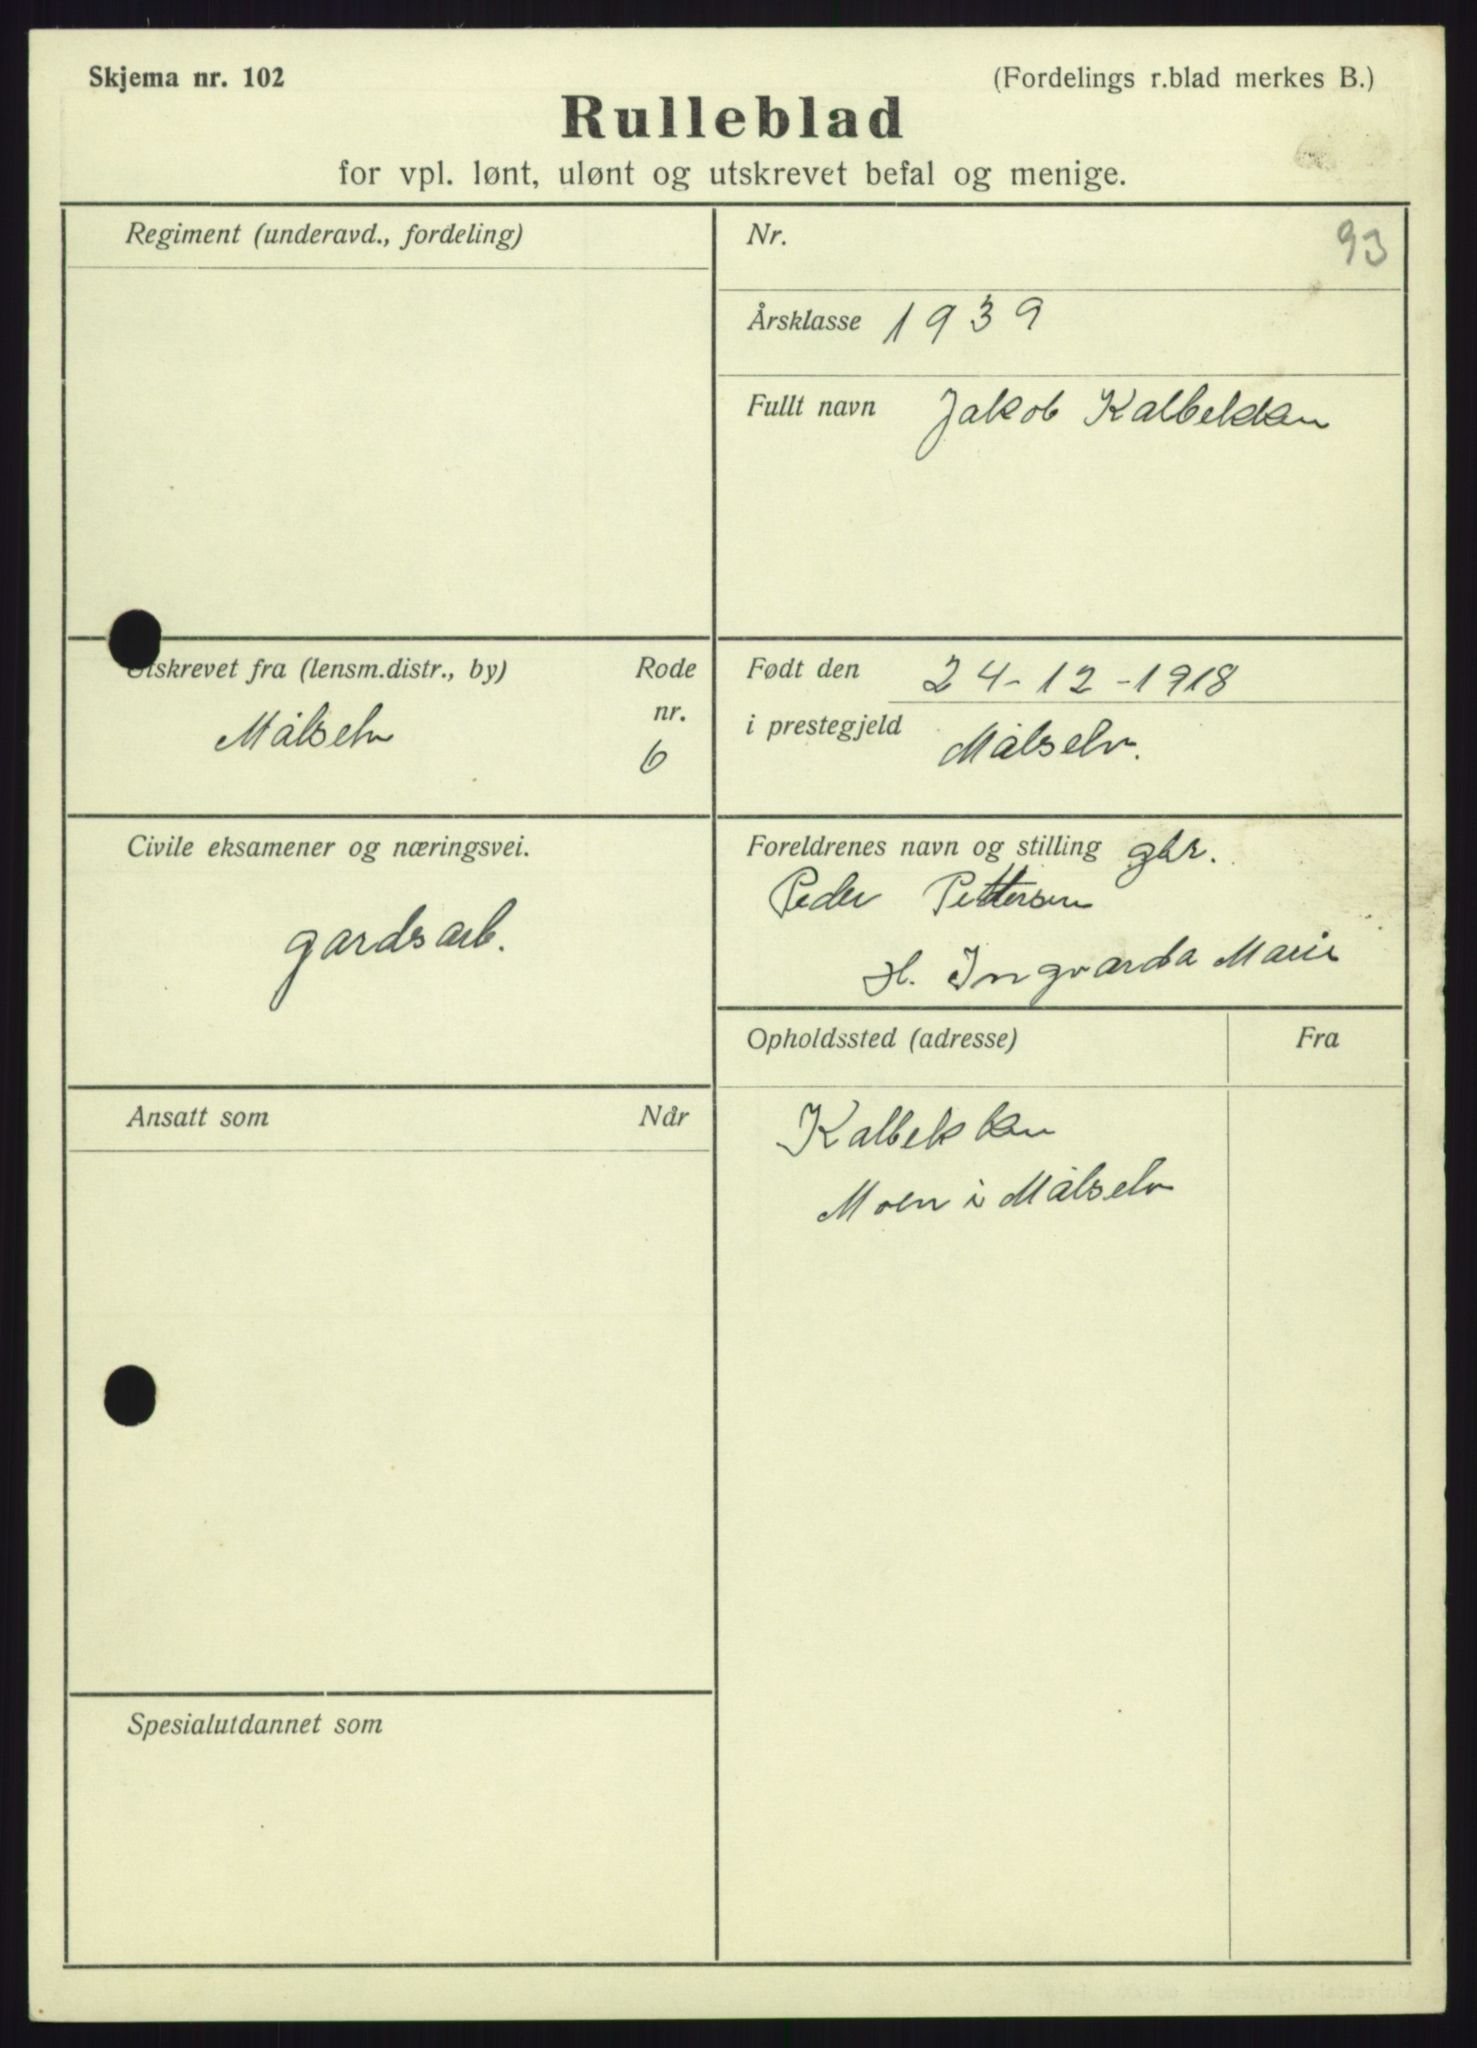 Skjema nr. 102
(Fordelings r.blad merkes B.)
Rulleblad
for vpl. lønt, ulønt og utskrevet befal og menige.
Regiment (underavd., fordeling)
Nr.
93
Årsklasse 1939
Fullt navn Jakob Kalbekken
Utskrevet fra (lensm.distr., by)
Rode
nr.
Målselv
6
Født den 24-12-1918
i prestegjeld Målselv.
Civile eksamener og næringsvei.
gardsarb.
Foreldrenes navn og stilling gbr.
Peder Pettersen
H. Ingvarda Marie
Ansatt som
Når
Opholdssted (adresse)
Fra
Kalbekken
Moen i Målselv
Spesialutdannet som